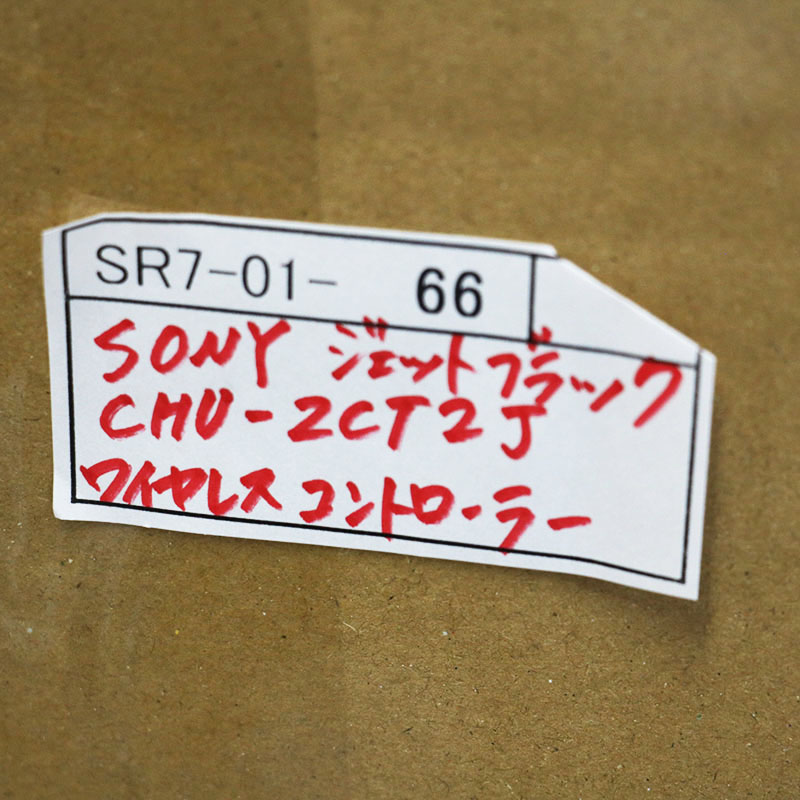 SR7-01- 66
SONY ジェットブラック
CHU-ZCT2J
ワイヤレスコントローラー